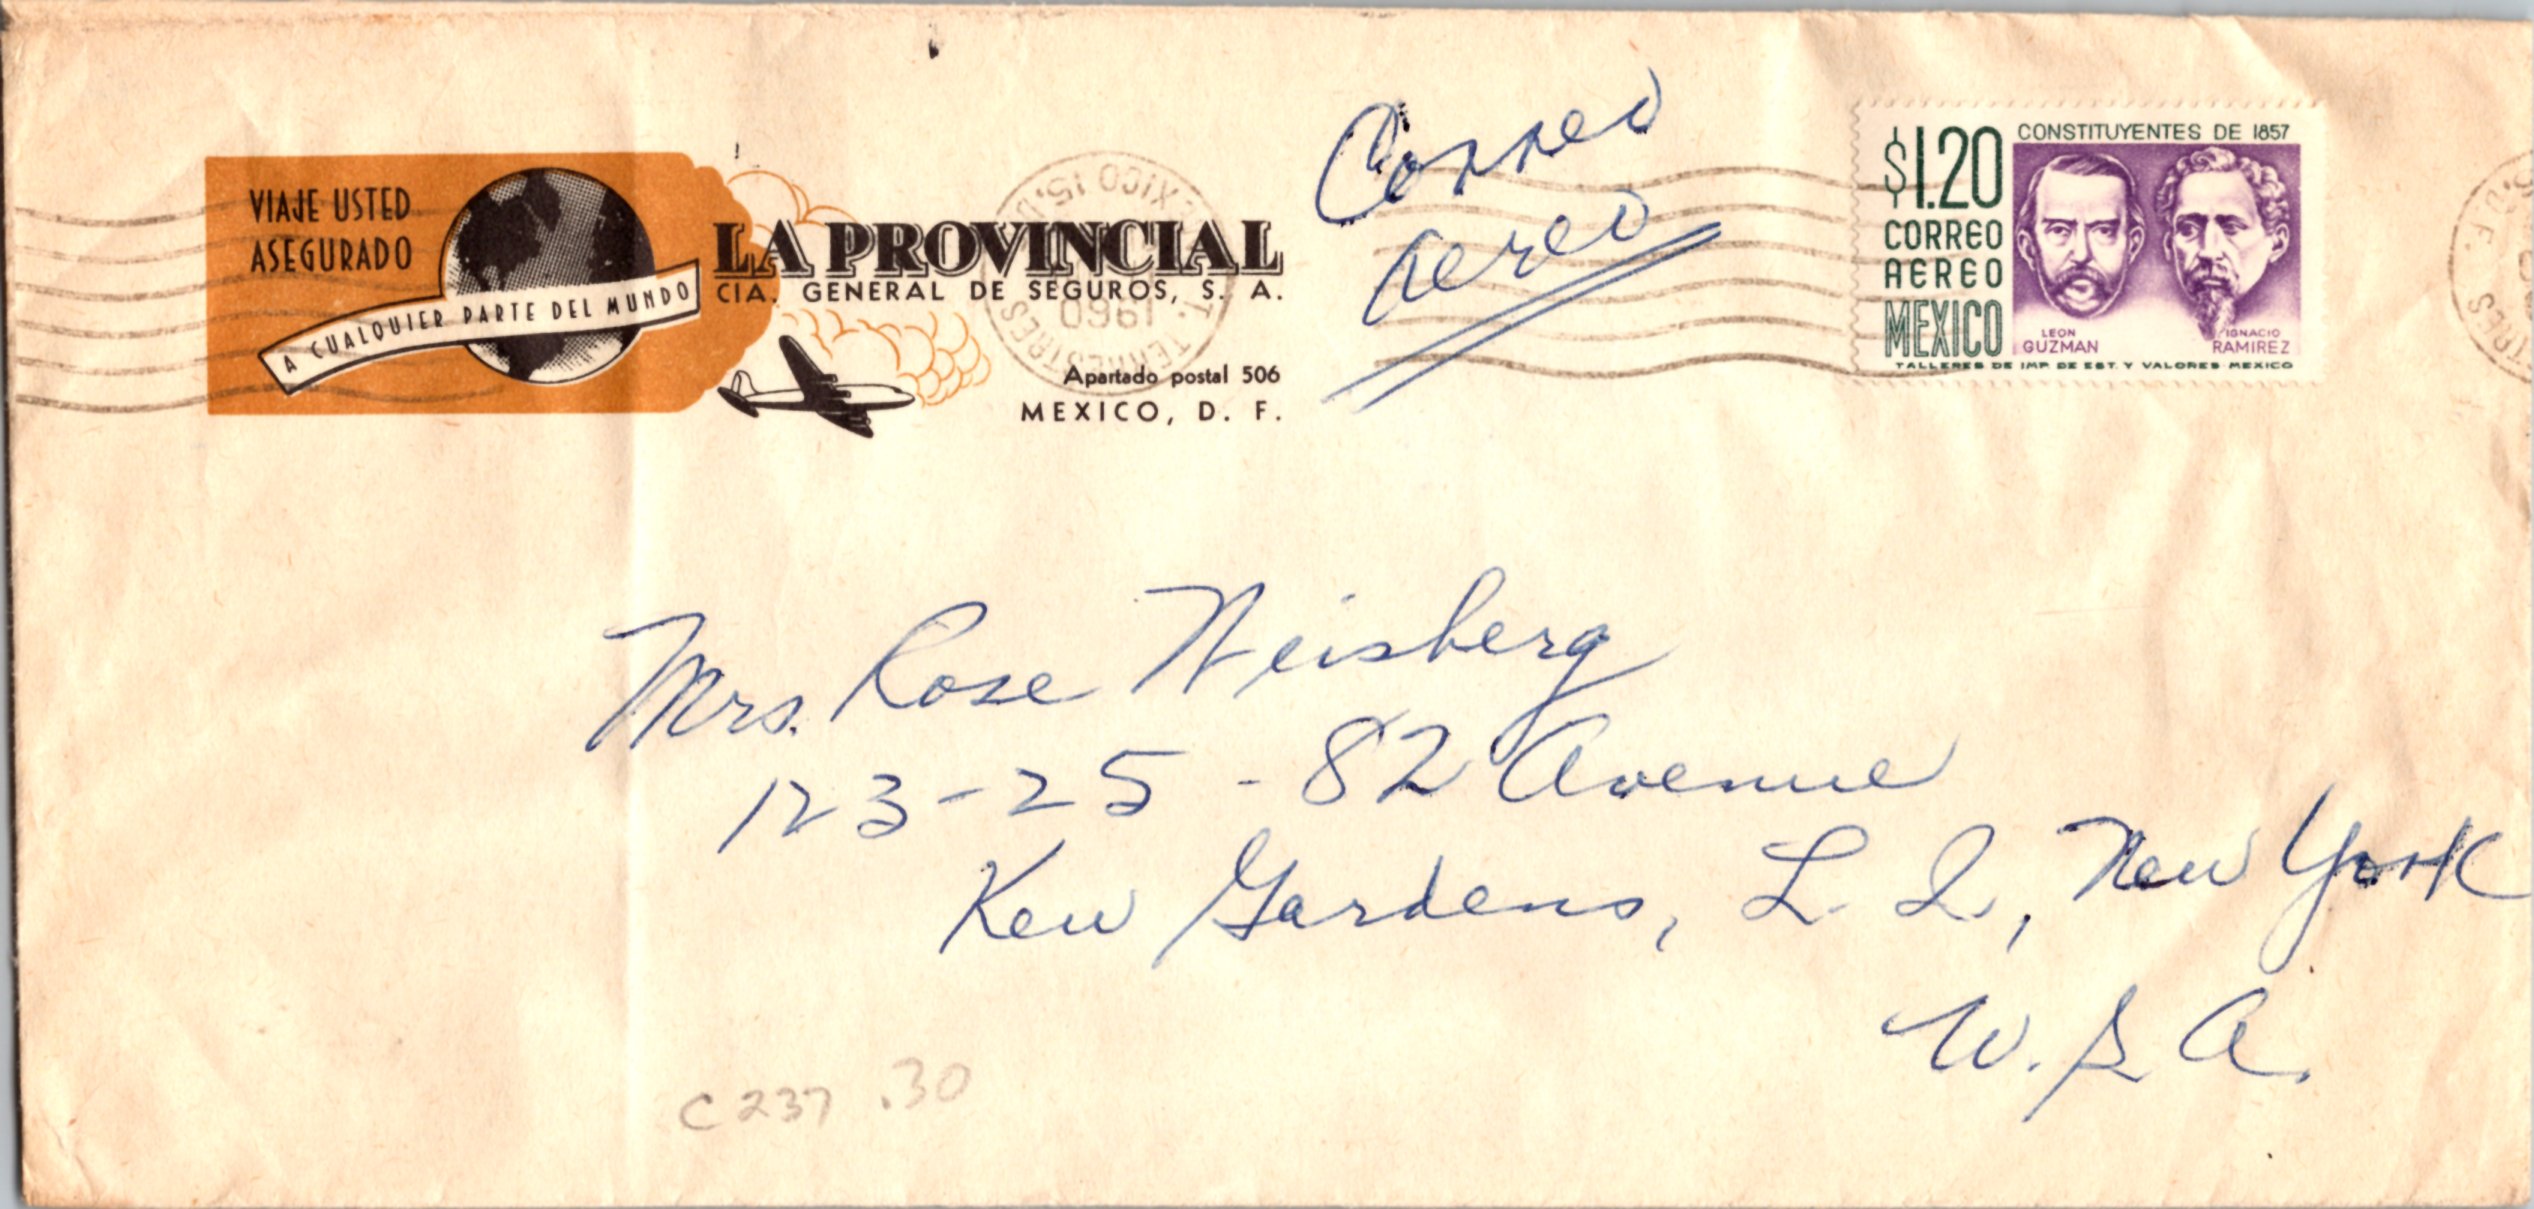 VIAJE USTED
ASEGURADO
A CUALQUIER PARTE DEL MUNDO
LA PROVINCIAL
CIA. GENERAL DE SEGUROS, S. A.
Apartado postal 506
MEXICO, D. F.
MEXICO 15, D.
1960
T. TERRESTRES
Correo
aereo
$1.20
CORREO
AEREO
MEXICO
CONSTITUYENTES DE 1857
LEON
GUZMAN
IGNACIO
RAMIREZ
TALLERES DE IMP. DE EST. Y VALORES MEXICO
D.F.
TRES
Mrs. Rose Weisberg
123-25 - 82 Avenue
Kew Gardens, L. I., New York
U.S.A.
C237 .30